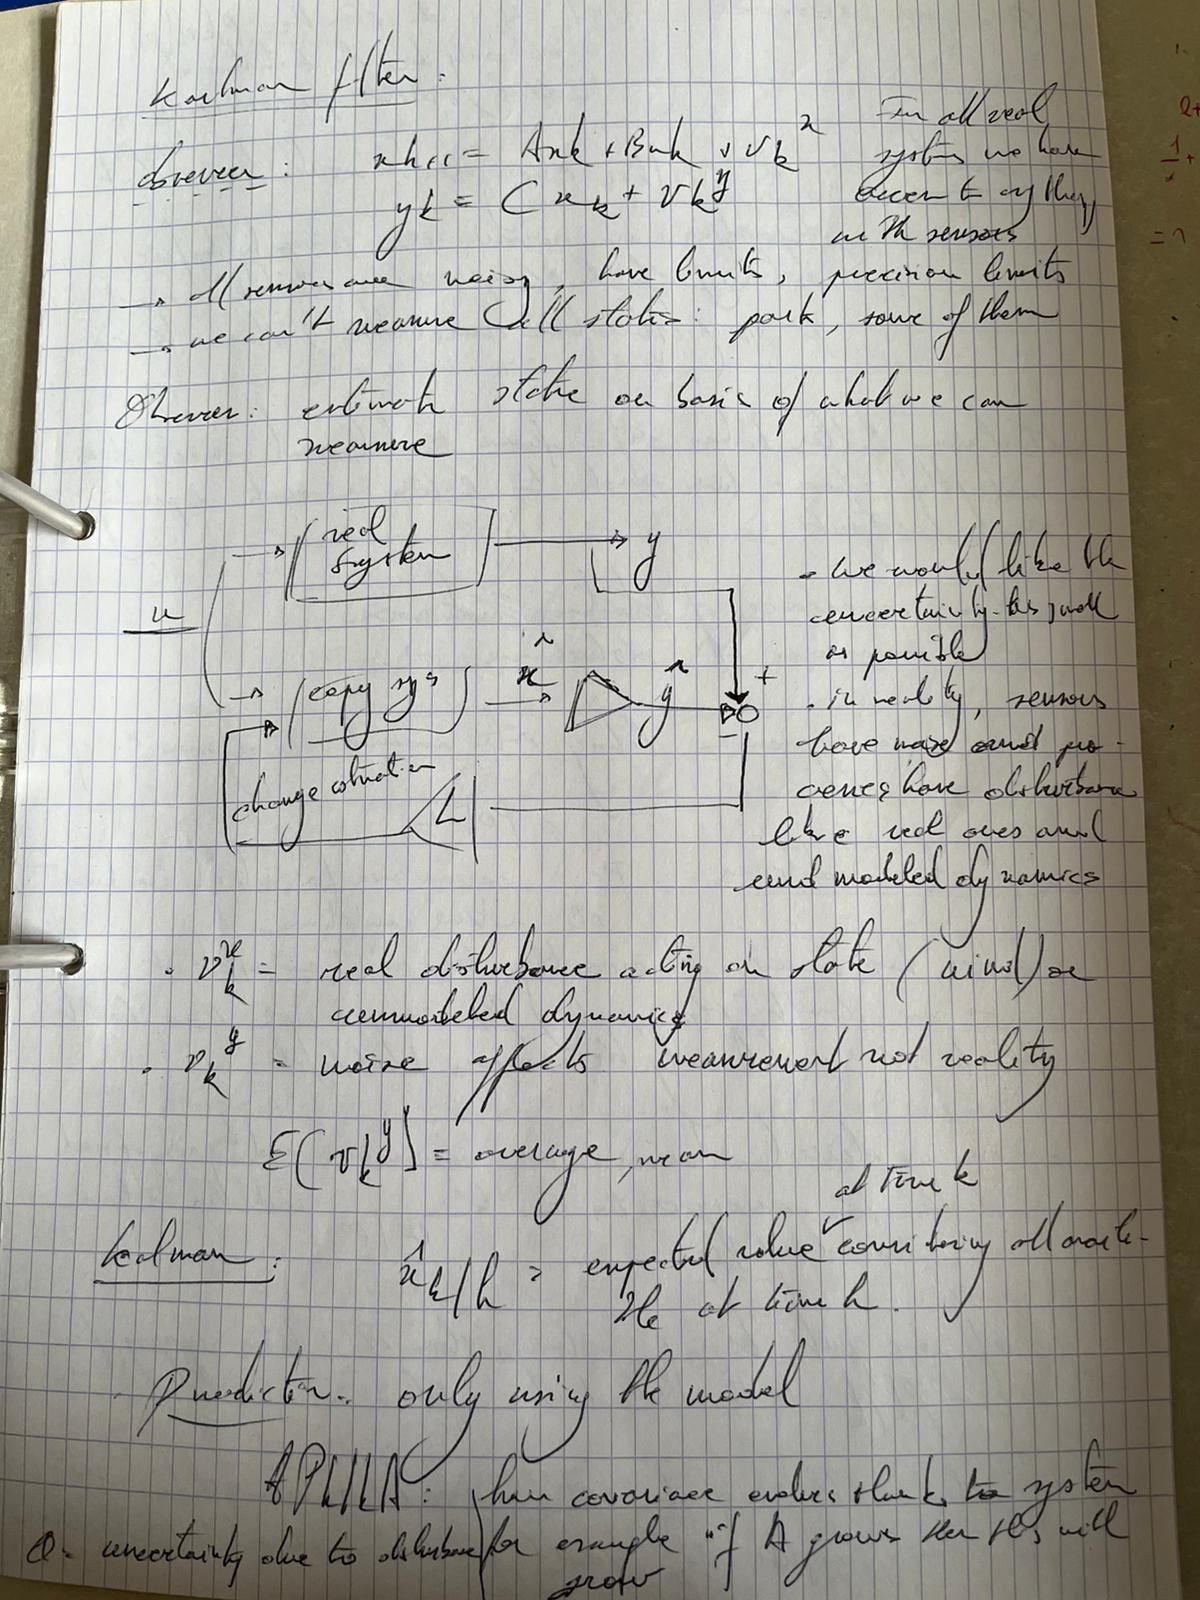 Kalman filter:
Observer: xk+1 = Axk + Buk + vk^x
yk = C xk + vk^y
In all real
systems we have
access to
with sensors
→ all sensors are noisy, have limits, precision limits
→ we can't measure all states: park, some of them
Observer: estimate state on basis of what we can
measure
real
system
y
u
copy sys
x̂
ŷ
+
-
change estimation
L
- we would like the
uncertainty as small
as possible
. in reality, sensors
have noise and pro-
cesses have disturbance
like real ones and
unmodeled dynamics
. vk^x = real disturbance acting on state (wind) or
unmodeled dynamics
. vk^y = noise affects measurement not reality
E[vk^y] = average, mean
at time k
Kalman: x̂k/h = expected value considering all
at time h.
Prediction: only using the model
A Pk/k A: how covariance evolves thanks to system
for example if A grows then this will
grow
Q = uncertainty due to disturbance